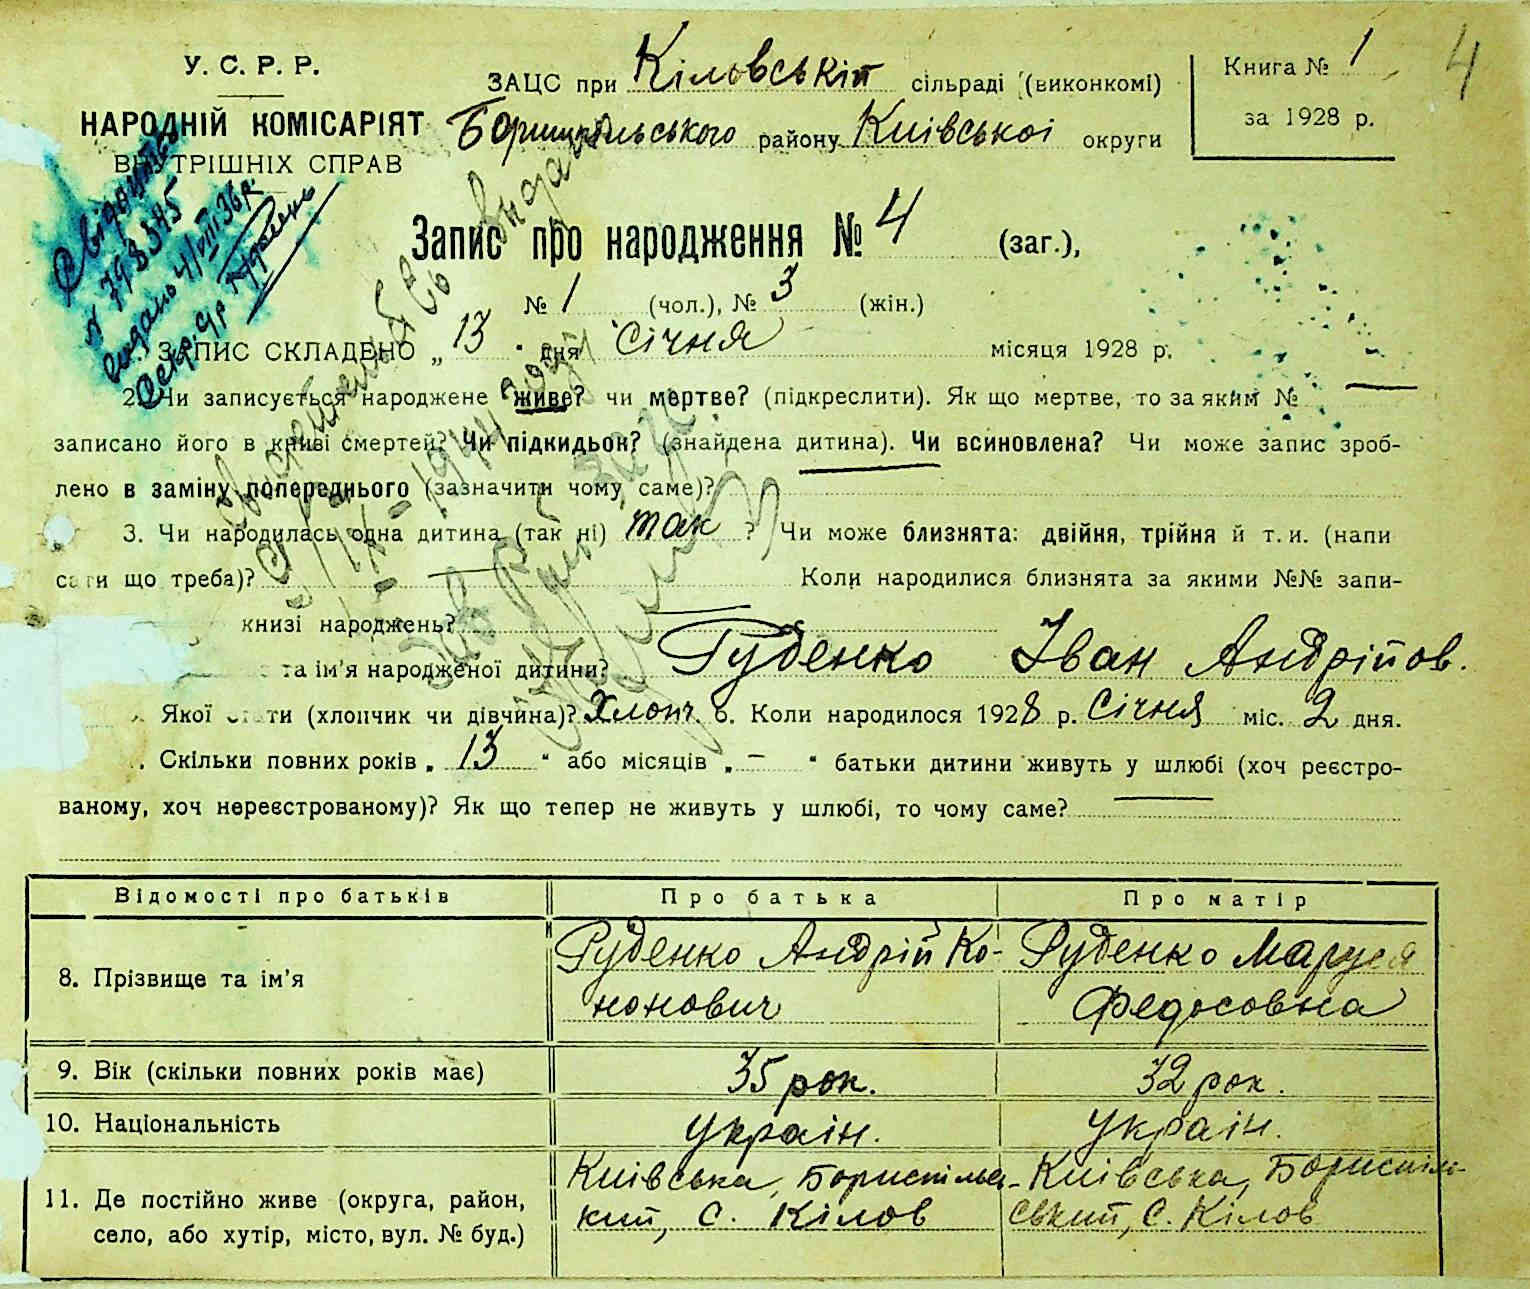 У. С. Р. Р.
НАРОДНІЙ КОМІСАРІЯТ
ВНУТРІШНІХ СПРАВ
ЗАЦС при Кіловській сільраді (виконкомі)
Бориспільського району Київської округи
Книга № 1
за 1928 р.
4
Свідоцтво
№ 798345
видано 4/VIII 36 р.
Секр. с/р
Запис про народження № 4 (заг.),
№ 1 (чол.), № 3 (жін.)
ЗАПИС СКЛАДЕНО „ 13 " дня Січня місяця 1928 р.
2. Чи записується народжене живе? чи мертве? (підкреслити). Як що мертве, то за яким №
записано його в книзі смертей? Чи підкидьок? (знайдена дитина). Чи всиновлена? Чи може запис зроб-
лено в заміну попереднього (зазначити чому саме)?
3. Чи народилась одна дитина (так ні) так ? Чи може близнята: двійня, трійня й т. и. (напи
сати що треба)? — Коли народилися близнята за якими №№ запи-
книзі народжень? —
та ім'я народженої дитини? Руденко Іван Андрійов.
Якої статі (хлопчик чи дівчина)? Хлопч. 6. Коли народилося 1928 р. Січня міс. 2 дня.
Скільки повних років „ 13 " або місяців „ — " батьки дитини живуть у шлюбі (хоч реєстро-
ваному, хоч нереєстрованому)? Як що тепер не живуть у шлюбі, то чому саме? —
Відомості про батьків Про батька Про матір
8. Прізвище та ім'я Руденко Андрій Ко- Руденко Маруся
нонович Федосовна
9. Вік (скільки повних років має) 35 рок. 32 рок.
10. Національність Україн. Україн.
11. Де постійно живе (округа, район, Київська, Бориспільсь- Київська, Бориспіль-
село, або хутір, місто, вул. № буд.) кий, с. Кілов ський, с. Кілов